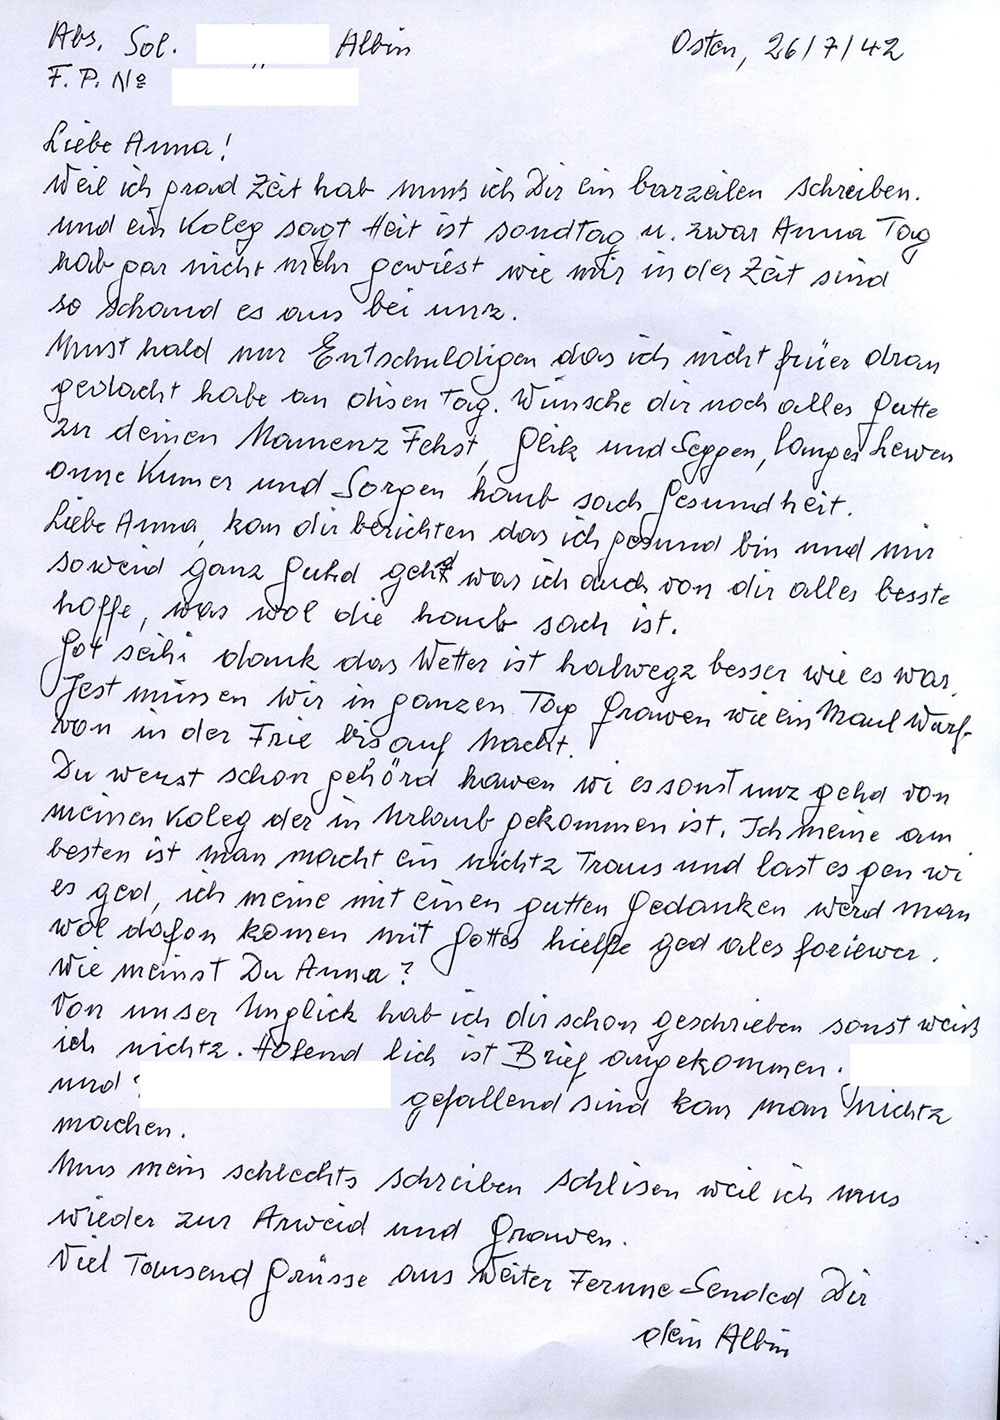 Abs. Sol. Albin Osten, 26/7/42
F. P. Nº
Liebe Anna!
Weil ich grad Zeit hab muss ich Dir ein barzeilen schreiben.
und ein Koleg sagt Heit ist sondtag u. zwar Anna Tag
hab gar nicht mehr gewiest wie mir in der Zeit sind
so schaud es aus bei unz.
Must hald mir Entschuldigen das ich nicht früer dran
gedacht habe an disen Tag. Wünsche dir noch alles gutte
zu deinen Namenz Fehst, glik und Seggen, langes Lewen
onne Kumer und Sorgen haub sach gesundheit.
Liebe Anna, kan dir berichten das ich gesund bin und mir
soweid ganz guhd gehd was ich auch von dir alles besste
hoffe, was wol die haub sach ist.
Got seihi dank das Wetter ist halwegz besser wie es war.
Jest müssen wir in ganzen Tag grawen wie ein Maul Wurf
von in der Frie bis auf Nacht.
Du werst schon gehörd hawen wi es sonst unz gehd von
meinen Koleg der in Urlaub gekommen ist. Ich meine am
besten ist man macht ein nichtz Traus und last es gen wi
es ged, ich meine mit einen gutten gedanken werd man
wol dafon komen mit gottes hielfe ged ales foriewer.
Wie meinst Du Anna?
Von unser Unglick hab ich dir schon geschrieben sonst weiß
ich nichtz. Hofend lich ist Brief angekommen.
und gefallend sind kan man nichtz
machen.
Mus mein schlechts schreiben schlisen weil ich mus
wieder zur Arweid und grawen.
Viel Tausend grüsse aus Weiter Fernne Sended Dir
dein Albin